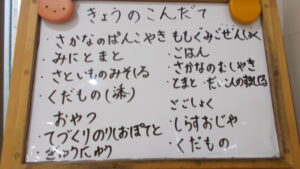 きょうのこんだて
・さかなのぱんこやき
・みにとまと
・さといものみそしる
・くだもの
おやつ
・てづくりのりしおぽてと
・ぎゅうにゅう
もしくみ
・ごはん
・さかなのむしやき
・とまと
ごごしょく
・しらすおじや
・くだもの